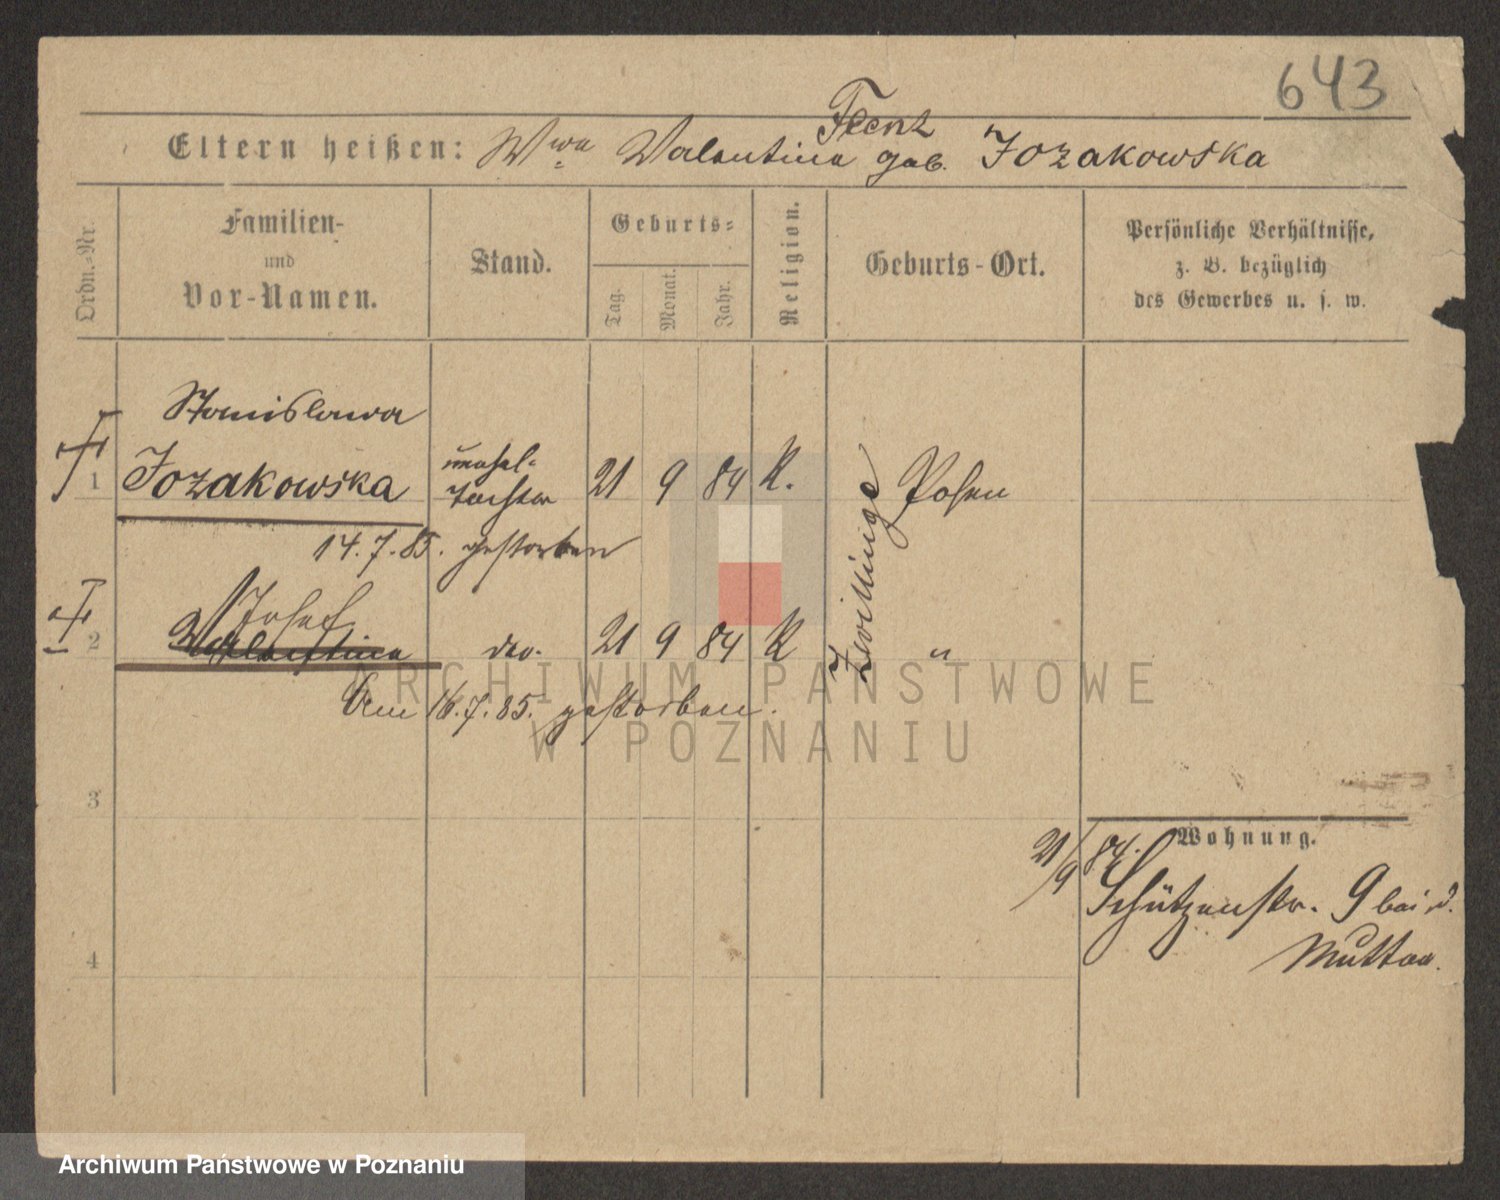 643
Flenz
Eltern heißen: Wwe Valentina geb. Jozakowska
Ordn.-Nr.
Familien-
und
Vor-Namen.
Stand.
Geburts-
Tag.
Monat.
Jahr.
Religion.
Geburts-Ort.
Persönliche Verhältnisse,
z. B. bezüglich
des Gewerbes u. s. w.
Stanislawa
1 Jozakowska unehel. Tochter 21 9 84 K. Posen
14.7.85. gestorben
Zwillinge
Josef
2 Valentina des. 21 9 84 K "
Am 16.7.85. gestorben.
ARCHIWUM PAŃSTWOWE
W POZNANIU
3
Wohnung.
21/9 84. Schützenstr. 9 bei d.
Mutter.
4
Archiwum Państwowe w Poznaniu